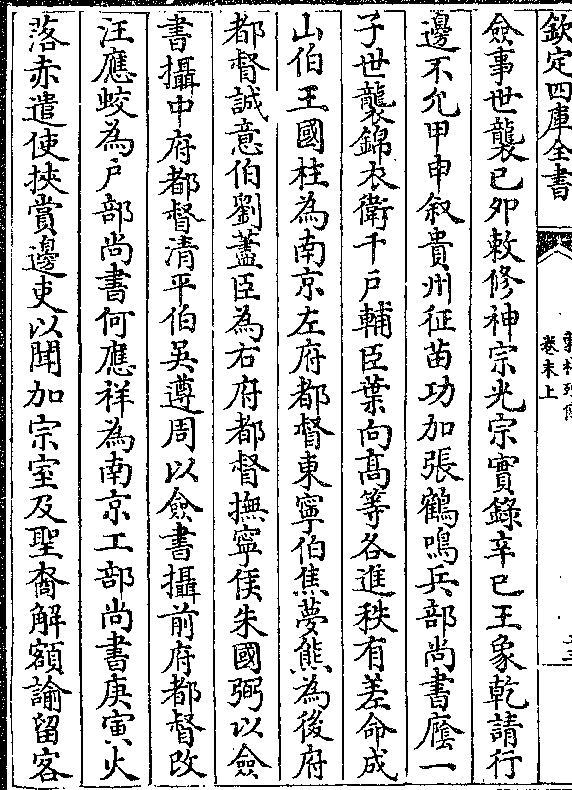 欽定四庫全書
卷末上
僉事世襲己卯敕修神宗光宗實錄辛巳王象乾請行
邊不允甲申敘貴州征苗功加張鶴鳴兵部尚書廕一
子世襲錦衣衛千戶輔臣葉向高等各進秩有差命成
山伯王國柱為南京左府都督東寧伯焦夢熊為後府
都督誠意伯劉藎臣為右府都督撫寧侯朱國弼以僉
書攝中府都督清平伯吳遵周以僉書攝前府都督改
汪應蛟為戶部尚書何應祥為南京工部尚書庚寅火
落赤遣使挾賞邊吏以聞加宗室及聖裔解額諭留客